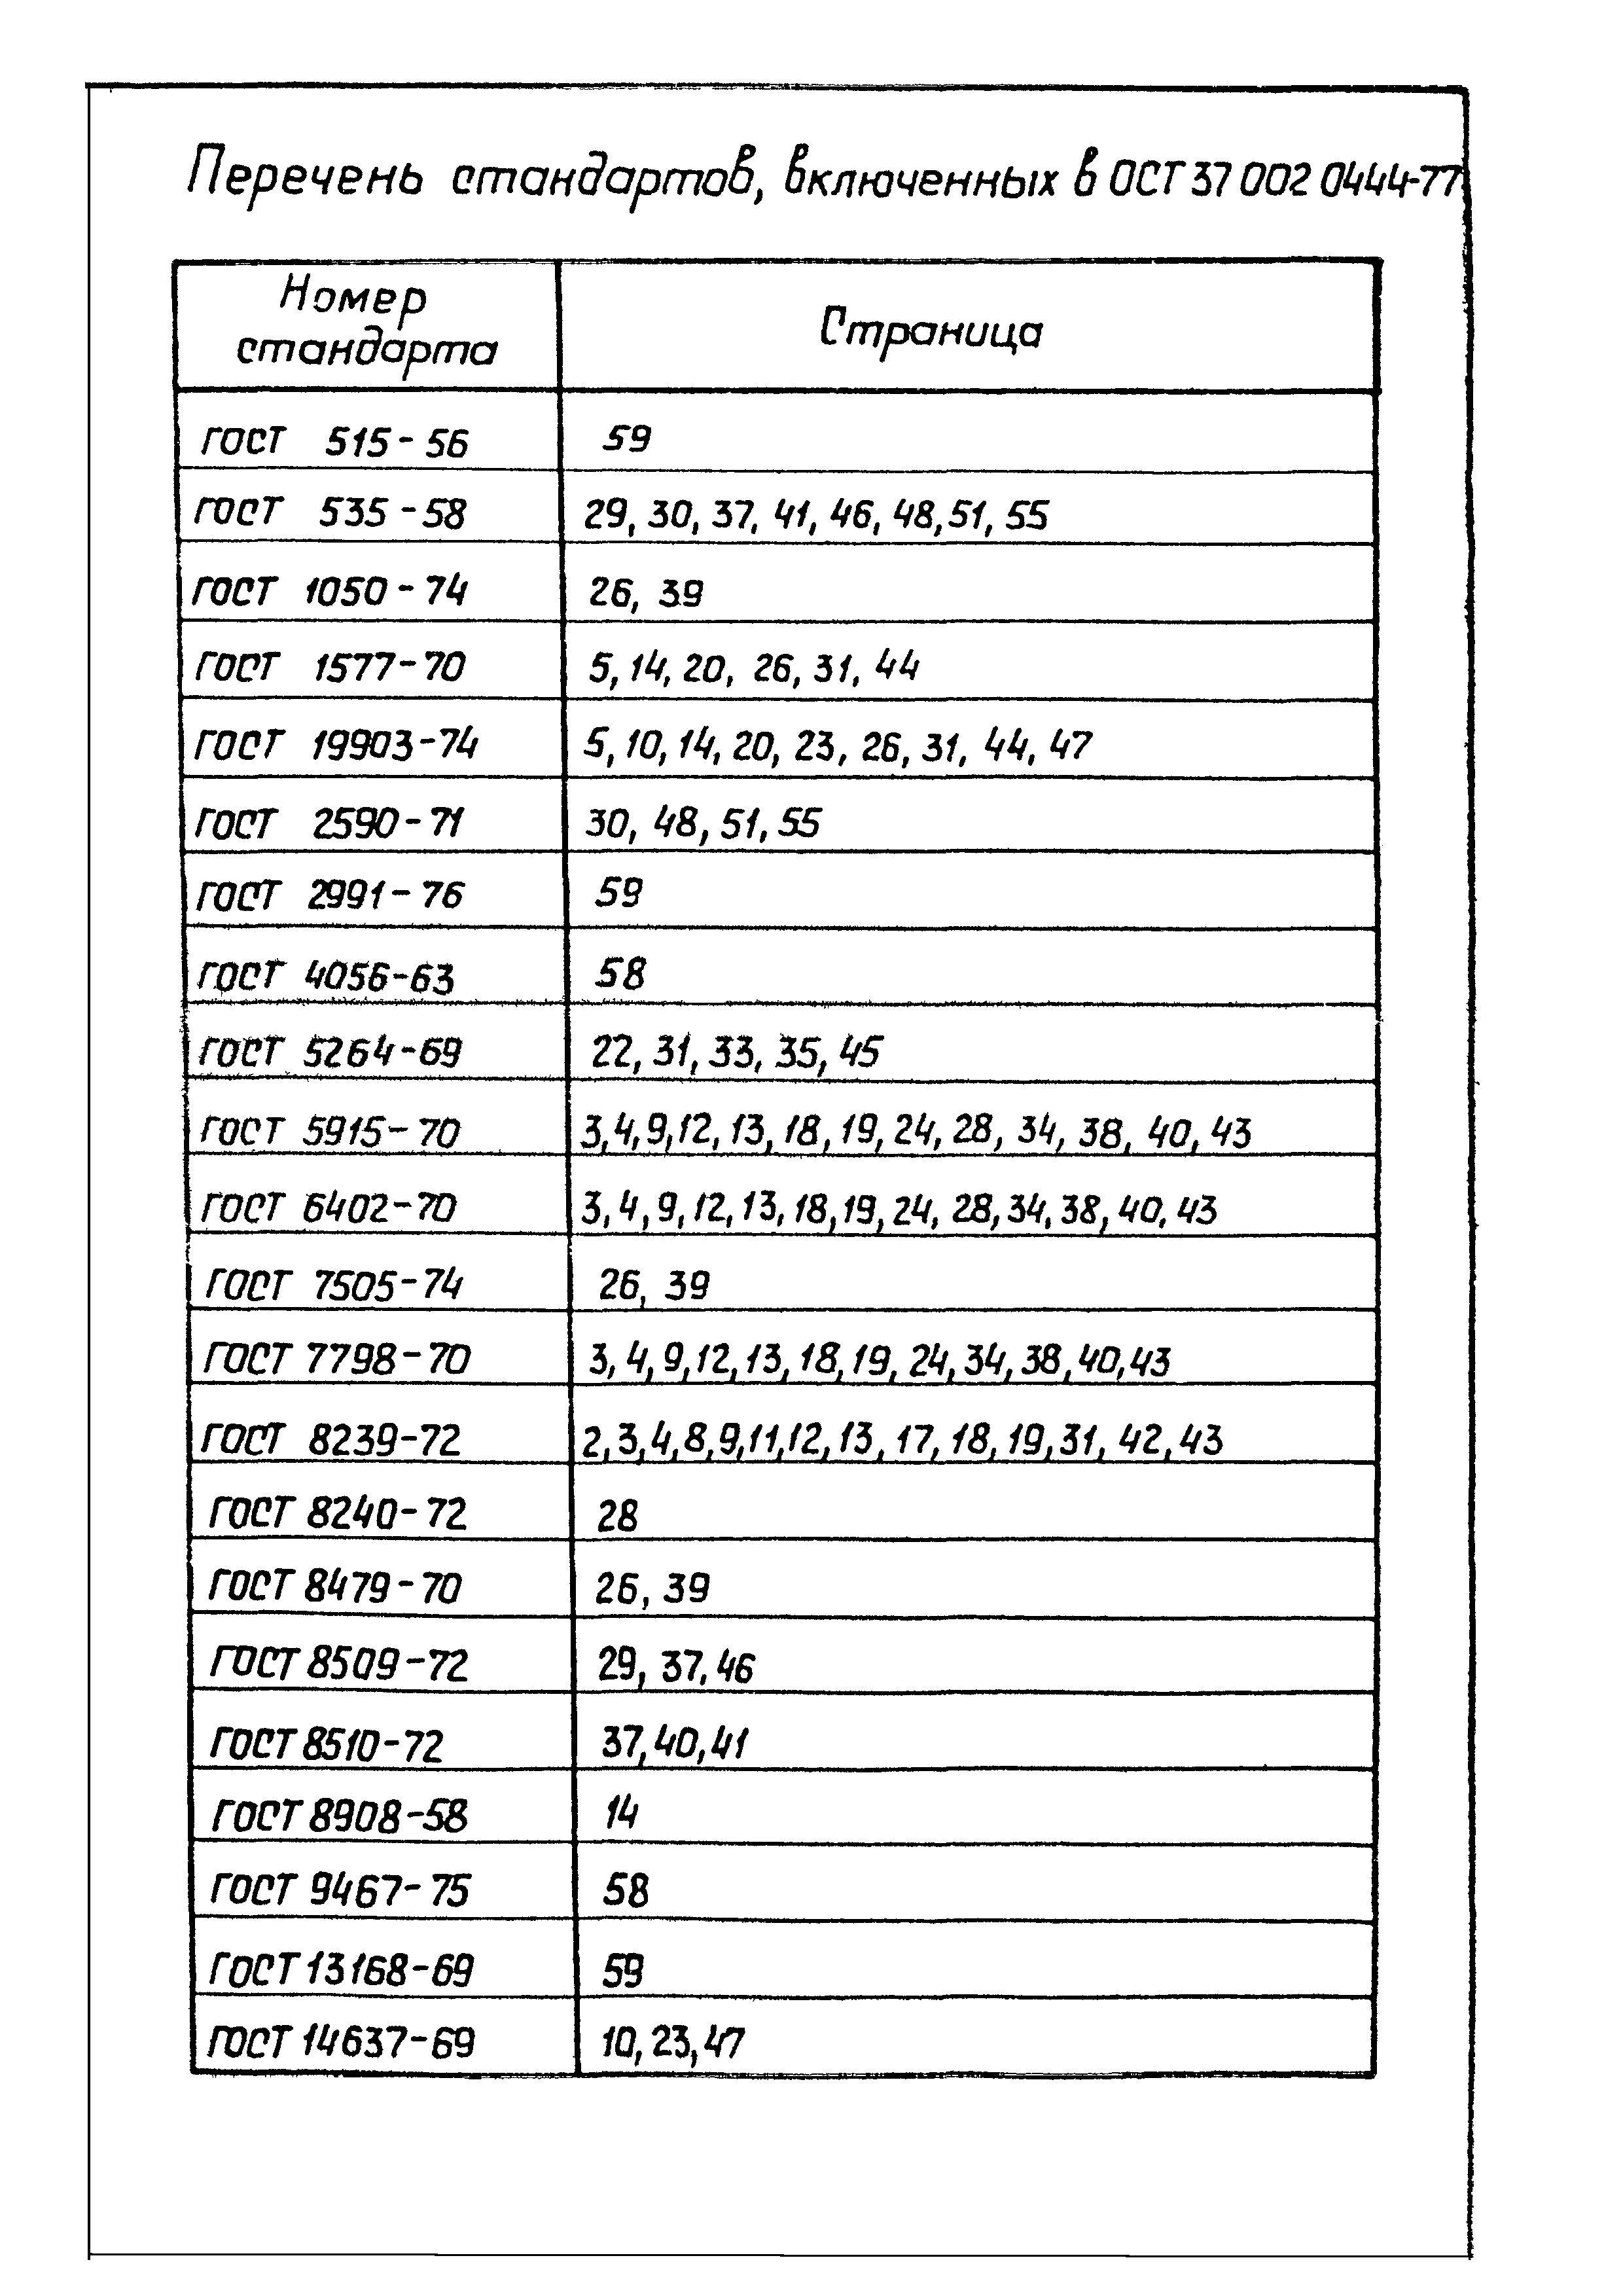 Перечень стандартов, включенных в ОСТ 37 002 0444-77
Номер
стандарта
Страница
ГОСТ 515-56 59
ГОСТ 535-58 29, 30, 37, 41, 46, 48, 51, 55
ГОСТ 1050-74 26, 39
ГОСТ 1577-70 5, 14, 20, 26, 31, 44
ГОСТ 19903-74 5, 10, 14, 20, 23, 26, 31, 44, 47
ГОСТ 2590-71 30, 48, 51, 55
ГОСТ 2991-76 59
ГОСТ 4056-63 58
ГОСТ 5264-69 22, 31, 33, 35, 45
ГОСТ 5915-70 3, 4, 9, 12, 13, 18, 19, 24, 28, 34, 38, 40, 43
ГОСТ 6402-70 3, 4, 9, 12, 13, 18, 19, 24, 28, 34, 38, 40, 43
ГОСТ 7505-74 26, 39
ГОСТ 7798-70 3, 4, 9, 12, 13, 18, 19, 24, 34, 38, 40, 43
ГОСТ 8239-72 2, 3, 4, 8, 9, 11, 12, 13, 17, 18, 19, 31, 42, 43
ГОСТ 8240-72 28
ГОСТ 8479-70 26, 39
ГОСТ 8509-72 29, 37, 46
ГОСТ 8510-72 37, 40, 41
ГОСТ 8908-58 14
ГОСТ 9467-75 58
ГОСТ 13168-69 59
ГОСТ 14637-69 10, 23, 47